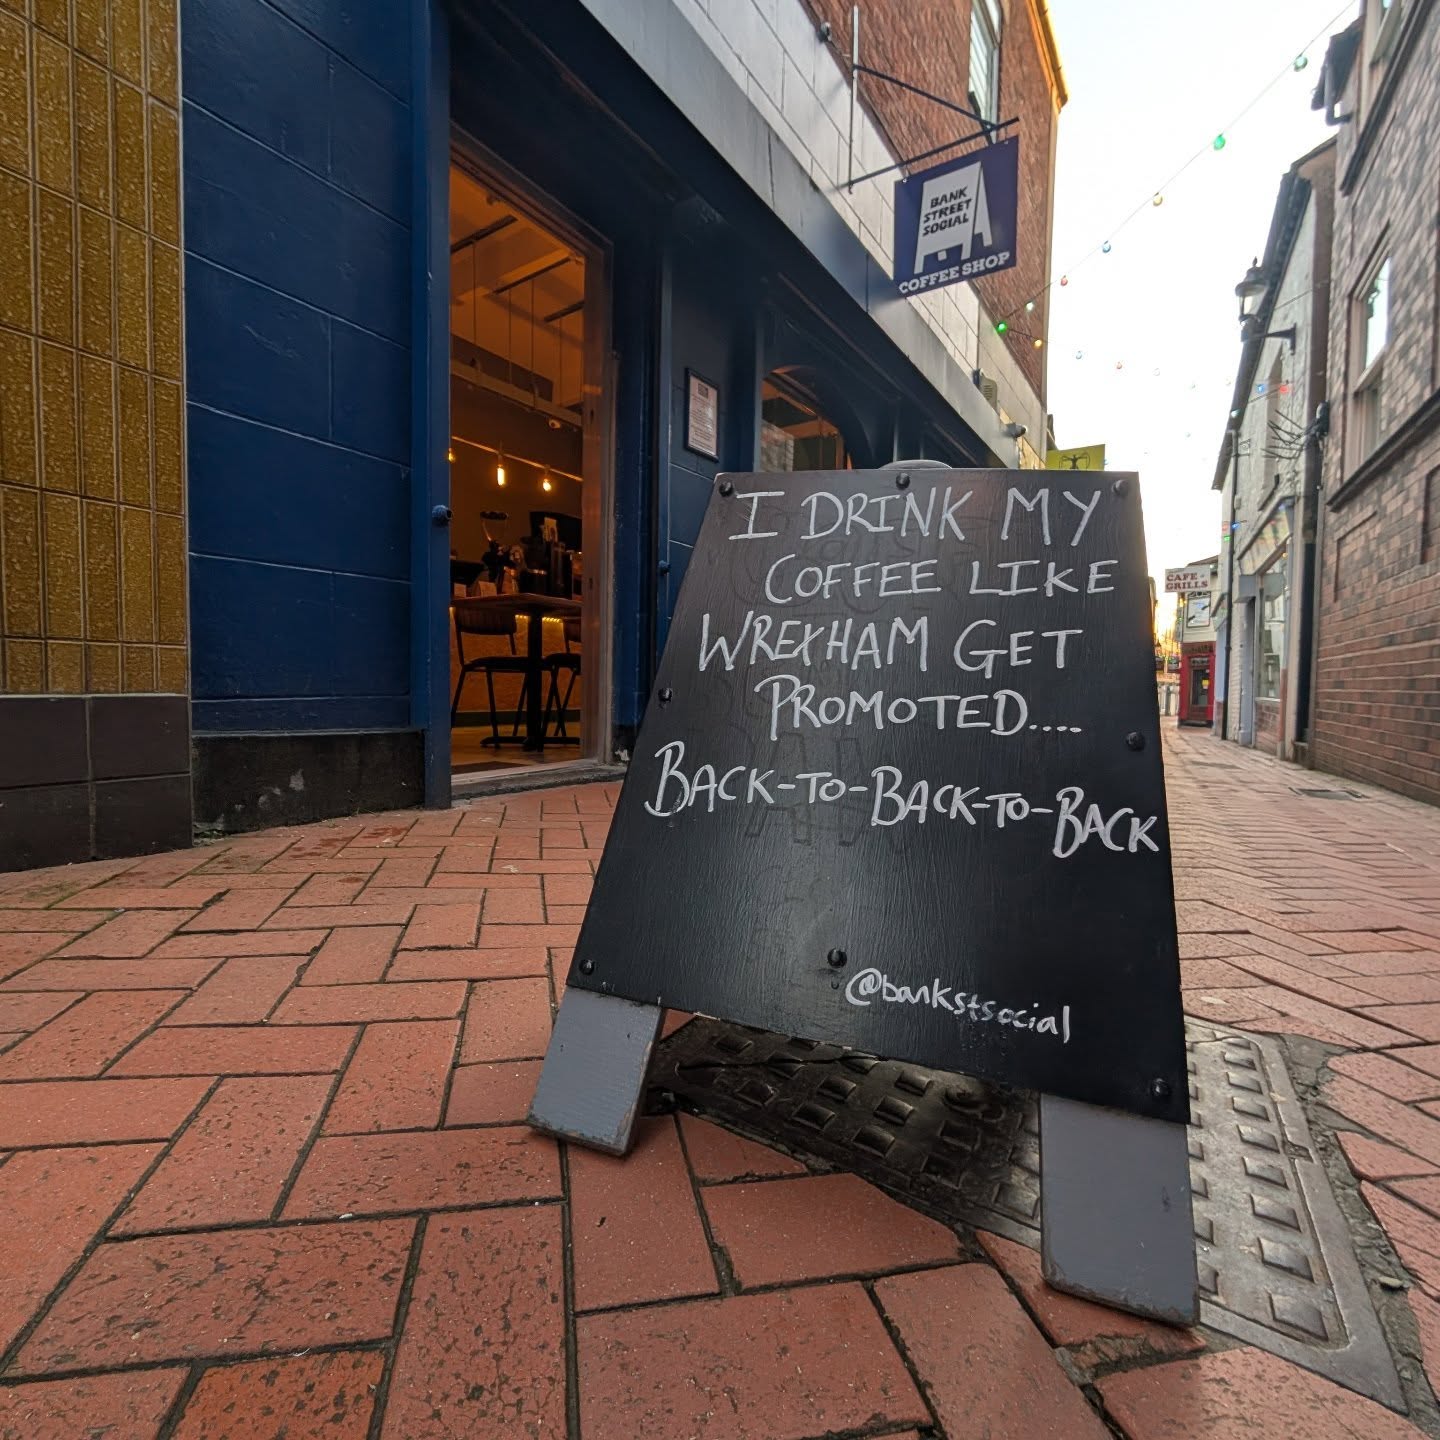 BANK
STREET
SOCIAL
COFFEE SHOP
I DRINK MY
COFFEE LIKE
WREXHAM GET
PROMOTED....
BACK-TO-BACK-TO-BACK
@bankstsocial
CAFE
GRILLS